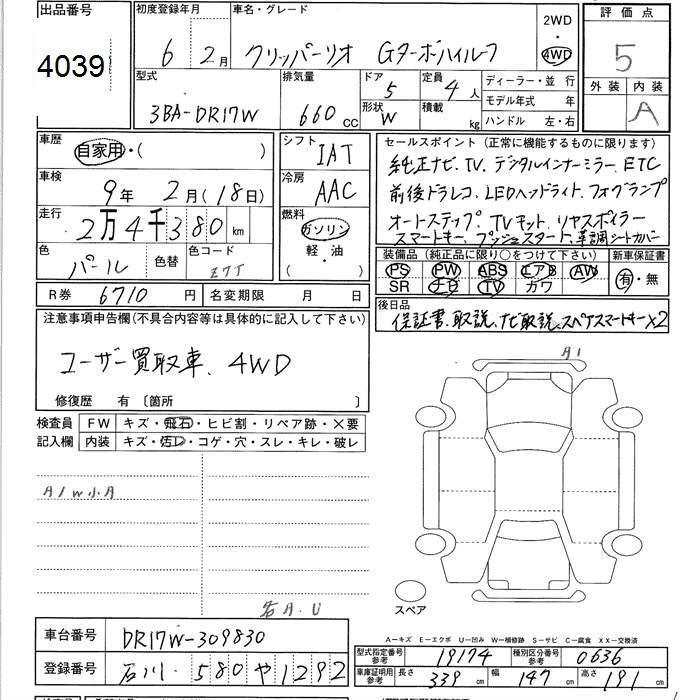 出品番号
4039
初度登録年月
6 2月
車名・グレード
クリッパーリオ Gターボハイルーフ
2WD
・
4WD
評価点
5
外装 内装
A
型式
3BA-DR17W
排気量
660 CC
ドア
5
形状
W
定員
4人
積載
kg
ディーラー・並行
モデル年式 年
ハンドル 左・右
車歴
自家用・( )
車検
9年 2月(18日)
走行
2万4千380km
色
パール
色替
色コード
Z7T
シフト
IAT
冷房
AAC
燃料
ガソリン
軽・油
( )
セールスポイント (正常に機能するものに限ります)
純正ナビ、TV、デジタルインナーミラー、ETC
前後ドラレコ、LEDヘッドライト、フォグランプ
オートステップ、TVキット、リヤスポイラー
スマートキー、プッシュスタート、革調シートカバー
装備品(純正品に限り○をつけて下さい)
PS PW ABS エアB AW
SR ナビ TV カワ
新車保証書
有・無
R券 6710円
名変期限 月 日
後日品
保証書、取説、ナビ取説、スペアスマートキー×2
注意事項申告欄(不具合内容等は具体的に記入して下さい)
ユーザー買取車、4WD
修復歴 有〔箇所 〕
検査員
記入欄
FW キズ・飛石・ヒビ割・リペア跡・×要
内装 キズ・汚レ・コゲ・穴・スレ・キレ・破レ
A1W小A
A1
スペア
A-キズ E-エクボ U-凹み W-補修跡 S-サビ C-腐食 XX-交換済
車台番号 DR17W-309830
登録番号 石川 580 や 1292
型式指定番号
参考
19174
種別区分番号
参考
0636
車庫証明用
参考
長さ 339 cm 幅 147 cm 高さ 191 cm